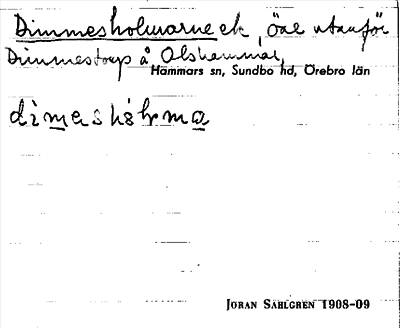 Dimmesholmarne ek, öar utanför
Dimmestorp å Olshammar,
Hammars sn, Sundbo hd, Örebro län
dimeshòlma
JÖRAN SAHLGREN 1908-09